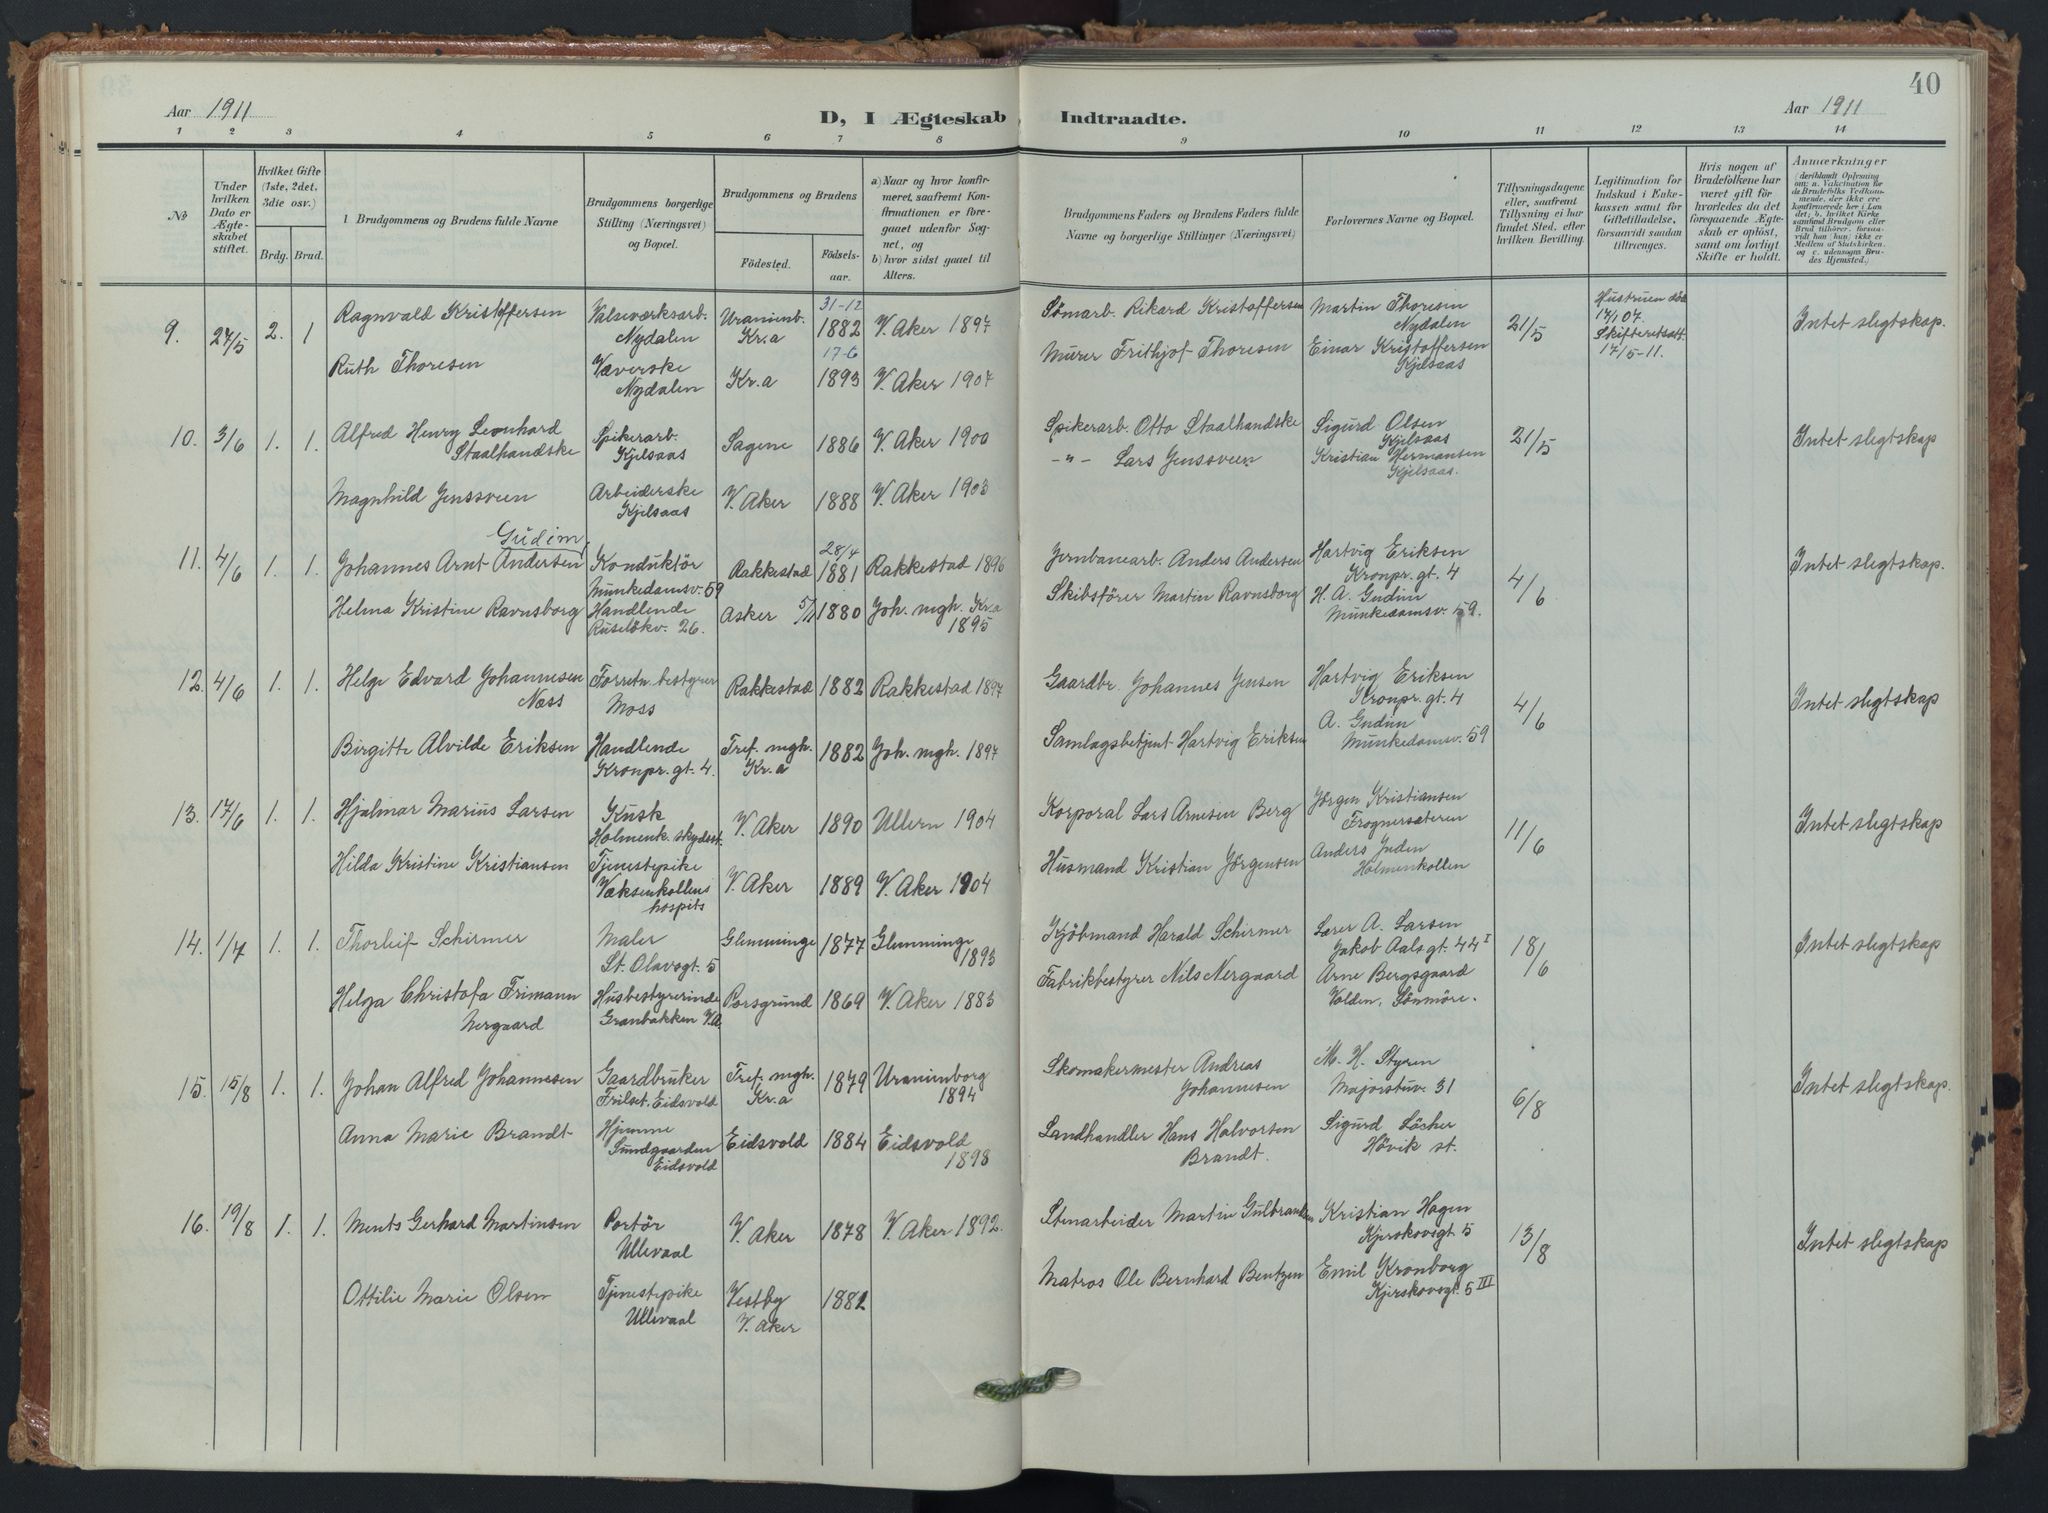 40
Aar 1911
D, I Ægteskab Indtraadte.
Aar 1911
1 2 3 4 5 6 7 8 9 10 11 12 13 14
№
Under hvilken Dato er Ægteskabet stiftet.
Hvilket Gifte (1ste, 2det, 3die osv.)
Brdg. Brud.
Brudgommens og Brudens fulde Navne
Brudgommens borgerlige Stilling (Næringsvei) og Bopæl.
Brudgommens og Brudens
Fødested.
Fødselsaar.
a) Naar og hvor konfirmeret, saafremt Konfirmationen er foregaaet udenfor Sognet, og
b) hvor sidst gaaet til Alters.
Brudgommens Faders og Brudens Faders fulde Navne og borgerlige Stillinger (Næringsvei)
Forlovernes Navne og Bopæl.
Tillysningsdagene eller, saafremt Tillysning ei har fundet Sted, efter hvilken Bevilling.
Legitimation for Indskud i Enkekassen samt for Giftetilladelse, forsaavidt saadan tiltrænges.
Hvis nogen af Brudefolkene har været gift før hvorledes da det foregaaende Ægteskab er opløst, samt om lovligt Skifte er holdt.
Anmærkninger
(deriblandt Oplysning om: a. Vaccination for de Brudefolks Vedkommende, der ikke ere konfirmerede her i Landet; b. hvilket Kirkesamfund Brudgom eller Brud tilhører, forsaavidt han (hun) ikke er Medlem af Statskirken, og c. udensogns Brudes Hjemsted.)
9. 27/5 2. 1 Ragnvald Kristoffersen Valseværksarb. Nydalen Uranienb. Kr.a 31-12 1882 V. Aker 1897 Sömarb. Rikard Kristoffersen Martin Thoresen Nydalen 21/5 Hustruen död 17/1 07. Skifteretsatt. 17/5-11. Intet slegtskap.
Ruth Thoresen Væverske Nydalen Kr.a 17-6 1893 V. Aker 1907 Murer Frithjof Thoresen Einar Kristoffersen Kjelsaas
10. 3/6 1. 1. Alfred Henry Leonhard Staalhandske Spikerarb. Kjelsaas Sagene 1886 V. Aker 1900 Spikerarb. Otto Staalhandske Sigurd Olsen Kjelsaas 21/5 Intet slegtskap
Magnhild Jenssveen Arbeiderske Kjelsaas V. Aker 1888 V. Aker 1903 -"- Lars Jenssveen Kristian Hermansen Kjelsaas.
11. 4/6 1. 1. Johannes Arnt Andersen Gudim Konduktör Munkedamsv. 59 Rakkestad 28/4 1881 Rakkestad 1896 Jernbanearb. Anders Andersen Hartvig Eriksen Kronpr. gt. 4 4/6 Intet slegtskap.
Helma Kristine Ravnsborg Handlende Ruselökv. 26. Asker 1880 Joh. mgh. Kr.a 1895 Skibsförer Martin Ravnsborg H. A. Gudim Munkedamsv. 59.
12. 4/6 1. 1. Helge Edvard Johannesen Næss Forretn. bestyrer Moss Rakkestad 1882 Rakkestad 1897 Gaardbr. Johannes Jensen Hartvig Eriksen Kronpr. gt. 4 4/6 Intet slegtskap
Birgitte Alvilde Eriksen Handlende Kronpr. gt. 4. Tref. mgh. Kr.a 1882 Joh. mgh. 1897 Samlagsbetjent Hartvig Eriksen A. Gudim Munkedamsv. 59
13. 17/6 1. 1. Hjalmar Marius Larsen Kusk Holmenk. skydsst. V. Aker 1890 Ullern 1904 Korporal Lars Arnesen Berg Jörgen Kristiansen Frognersæteren 11/6 Intet slegtskap
Hilda Kristine Kristiansen Tjenestepike Væksenkollens hospits V. Aker 1889 V. Aker 1904 Husmand Kristian Jörgensen Anders Juden Holmenkollen
14. 1/7 1. 1. Thorleif Schirmer Maler St. Olavsgt. 5 Glemminge 1877 Glemminge 1893 Kjöbmand Harald Schirmer Lærer A. Larsen Jakob Aalsgt. 44 I 18/6 Intet slegtskap
Helga Christofa Frimann Nergaard Husbestyrerinde Granbakken V.A. Porsgrund 1869 V. Aker 1883 Fabrikbestyrer Nils Nergaard Arne Bergsgaard Volden, Sönmöre.
15. 15/8 1. 1. Johan Alfred Johannesen Gaardbruker Frilset. Eidsvold Tref. mgh. Kr.a 1879 Uranienborg 1894 Skomakermester Andreas Johannesen M. H. Styren Majorstuv. 31 6/8 Intet slegtskap.
Anna Marie Brandt Hjemme Sundgaarden Eidsvold Eidsvold 1884 Eidsvold 1898 Landhandler Hans Halvorsen Brandt. Sigurd Löcher Hövik st.
16. 19/8 1. 1. Ments Gerhard Martinsen Portör Ullevaal V. Aker 1878 V. Aker 1892. Stenarbeider Martin Gulbrandsen Kristian Hagen Kjerskovsgt. 5 13/8 Intet slegtskap
Ottilie Marie Olsen Tjenestepike Ullevaal Vestby V. Aker 1882 Matros Ole Bernhard Bentzen Emil Kronborg Kjerskovsgt. 5 III